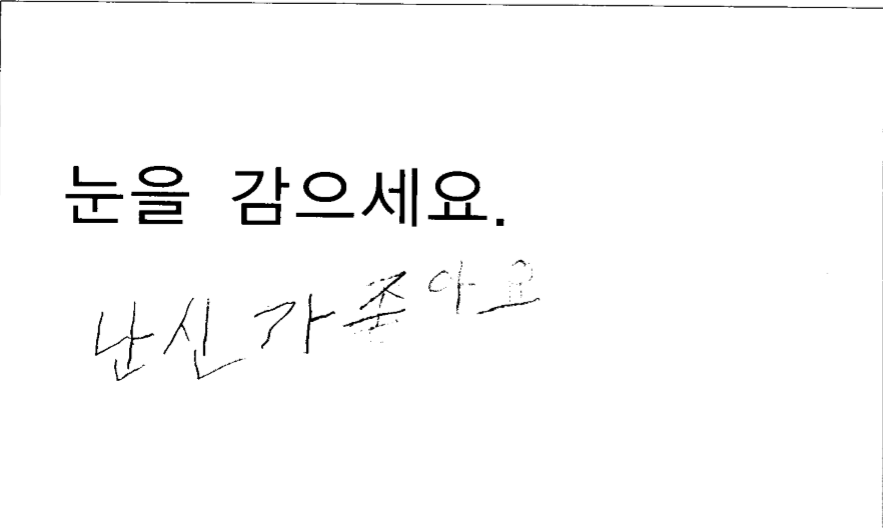 눈을 감으세요.
난신 가 좋아요